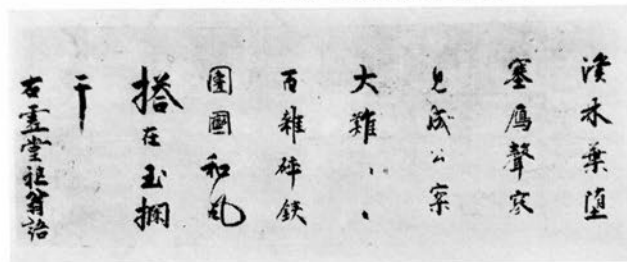 木葉堕
塞鴈聲寒
見成公案
大難、、
百雜碎鉄
團圞和風
搭在玉欄
干
右虚堂祖翁語